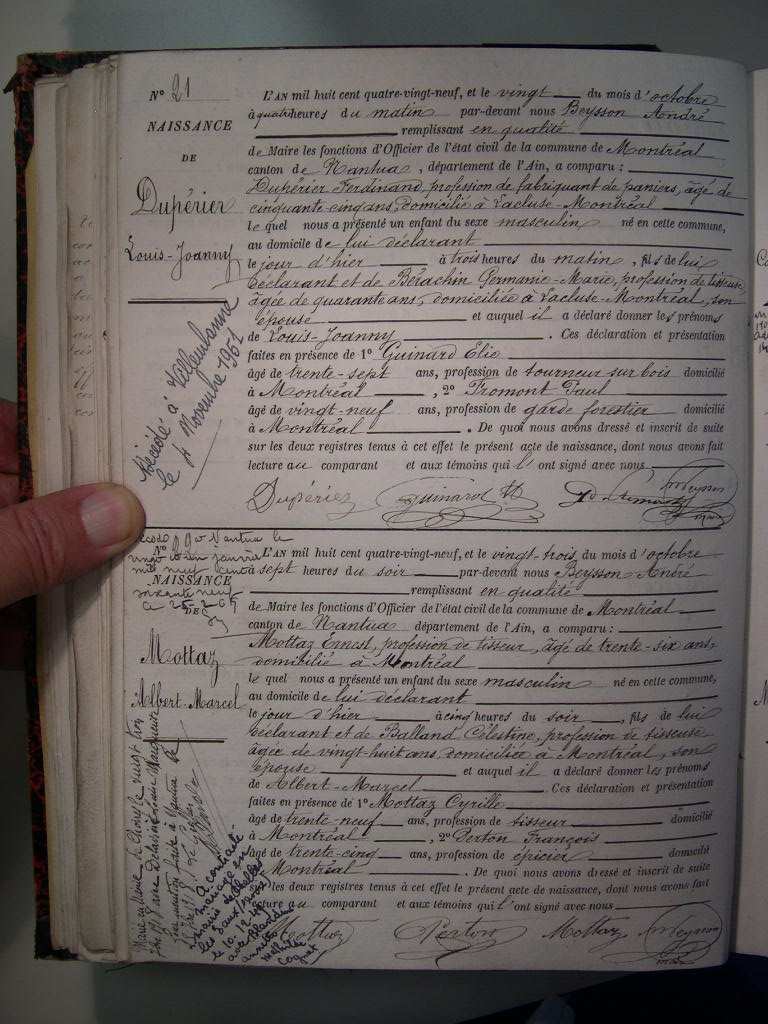 N° 21
NAISSANCE
DE
Dupérier
Louis-Joanny
L'AN mil huit cent quatre-vingt-neuf, et le vingt du mois d'octobre
à quatre heures du matin par-devant nous Beysson André
remplissant en qualité
de Maire les fonctions d'Officier de l'état civil de la commune de Montréal
canton de Nantua, département de l'Ain, a comparu :
Dupérier Ferdinand, profession de fabriquant de paniers, âgé de
cinquante cinq ans, domicilié à Lacluse-Montréal
le quel nous a présenté un enfant du sexe masculin né en cette commune,
au domicile de lui déclarant
le jour d'hier à trois heures du matin, fils de lui
déclarant et de Bérachin Germanie-Marie, profession de tisseuse
âgée de quarante ans, domiciliée à Lacluse-Montréal, son
épouse et auquel il a déclaré donner les prénoms
de Louis-Joanny. Ces déclaration et présentation
faites en présence de 1° Guinard Elie
âgé de trente-sept ans, profession de tourneur sur bois domicilié
à Montréal, 2° Fromont Paul
âgé de vingt-neuf ans, profession de garde forestier domicilié
à Montréal. De quoi nous avons dressé et inscrit de suite
sur les deux registres tenus à cet effet le présent acte de naissance, dont nous avons fait
lecture au comparant et aux témoins qui l'ont signé avec nous
Dupérier Guinard
Décédé à
le 4 Novembre 1961
NAISSANCE
Mottaz
Albert-Marcel
L'AN mil huit cent quatre-vingt-neuf, et le vingt-trois du mois d'octobre
à sept heures du soir par-devant nous Beysson André
remplissant en qualité
de Maire les fonctions d'Officier de l'état civil de la commune de Montréal
canton de Nantua département de l'Ain, a comparu :
Mottaz Ernest, profession de tisseur, âgé de trente-six ans,
domicilié à Montréal
le quel nous a présenté un enfant du sexe masculin né en cette commune,
au domicile de lui déclarant
le jour d'hier à cinq heures du soir, fils de lui
déclarant et de Balland Célestine, profession de tisseuse
âgée de vingt-huit ans, domiciliée à Montréal, son
épouse et auquel il a déclaré donner les prénoms
de Albert-Marcel. Ces déclaration et présentation
faites en présence de 1° Mottaz Cyrille
âgé de trente-neuf ans, profession de tisseur domicilié
à Montréal, 2° Perton François
âgé de trente-cinq ans, profession de épicier domicilié
à Montréal. De quoi nous avons dressé et inscrit de suite
sur les deux registres tenus à cet effet le présent acte de naissance, dont nous avons fait
lecture au comparant et aux témoins qui l'ont signé avec nous
Mottaz Perton Mottaz
A contracté
mariage en
mairie de
le 10-12-